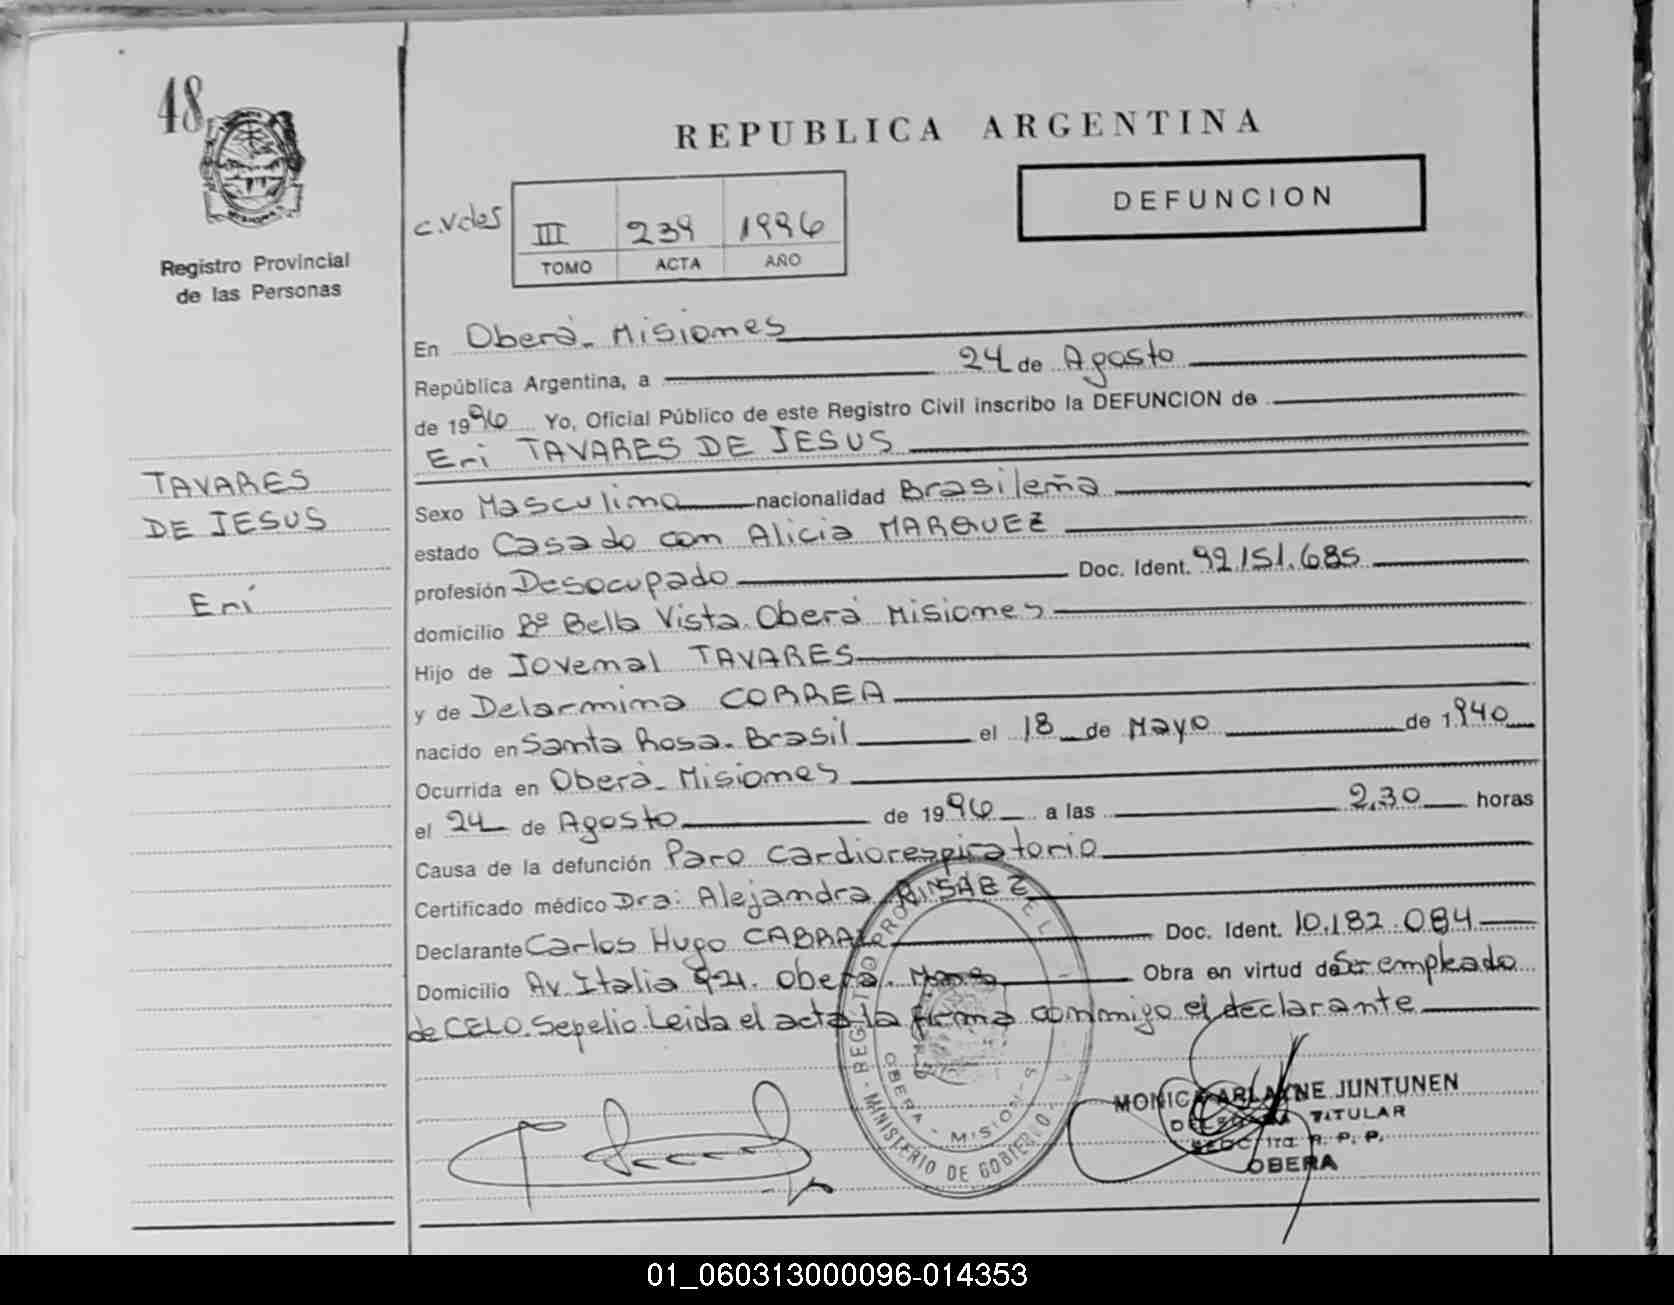 48
REPUBLICA ARGENTINA
DEFUNCION
C.Vdes
III 239 1996
TOMO ACTA AÑO
Registro Provincial
de las Personas
En Oberá - Misiones
República Argentina, a 24 de Agosto
de 1996 Yo, Oficial Público de este Registro Civil inscribo la DEFUNCION de
Eri TAVARES DE JESUS
TAVARES
DE JESUS
Eri
Sexo Masculino nacionalidad Brasileña
estado Casado con Alicia MARQUEZ
profesión Desocupado Doc. Ident. 92.151.685
domicilio Bº Bella Vista. Oberá Misiones
Hijo de Jovenal TAVARES
y de Delarmina CORREA
nacido en Santa Rosa - Brasil el 18 de Mayo de 1940
Ocurrida en Oberá - Misiones
el 24 de Agosto de 1996 a las 2,30 horas
Causa de la defunción Paro cardiorespiratorio
Certificado médico Dra: Alejandra
Declarante Carlos Hugo CABRAL Doc. Ident. 10.182.084
Domicilio Av. Italia 921. Oberá. Mnes Obra en virtud de Ser empleado
de CELO. Sepelio. Leida el acta la firma conmigo el declarante
REGISTRO PROVINCIAL DE L
OBERA - MISIONES
MINISTERIO DE GOBIERNO
MONICA ARLAYNE JUNTUNEN
DELEGADA TITULAR
SECC. 1ra. R. P. P.
OBERA
01_060313000096-014353